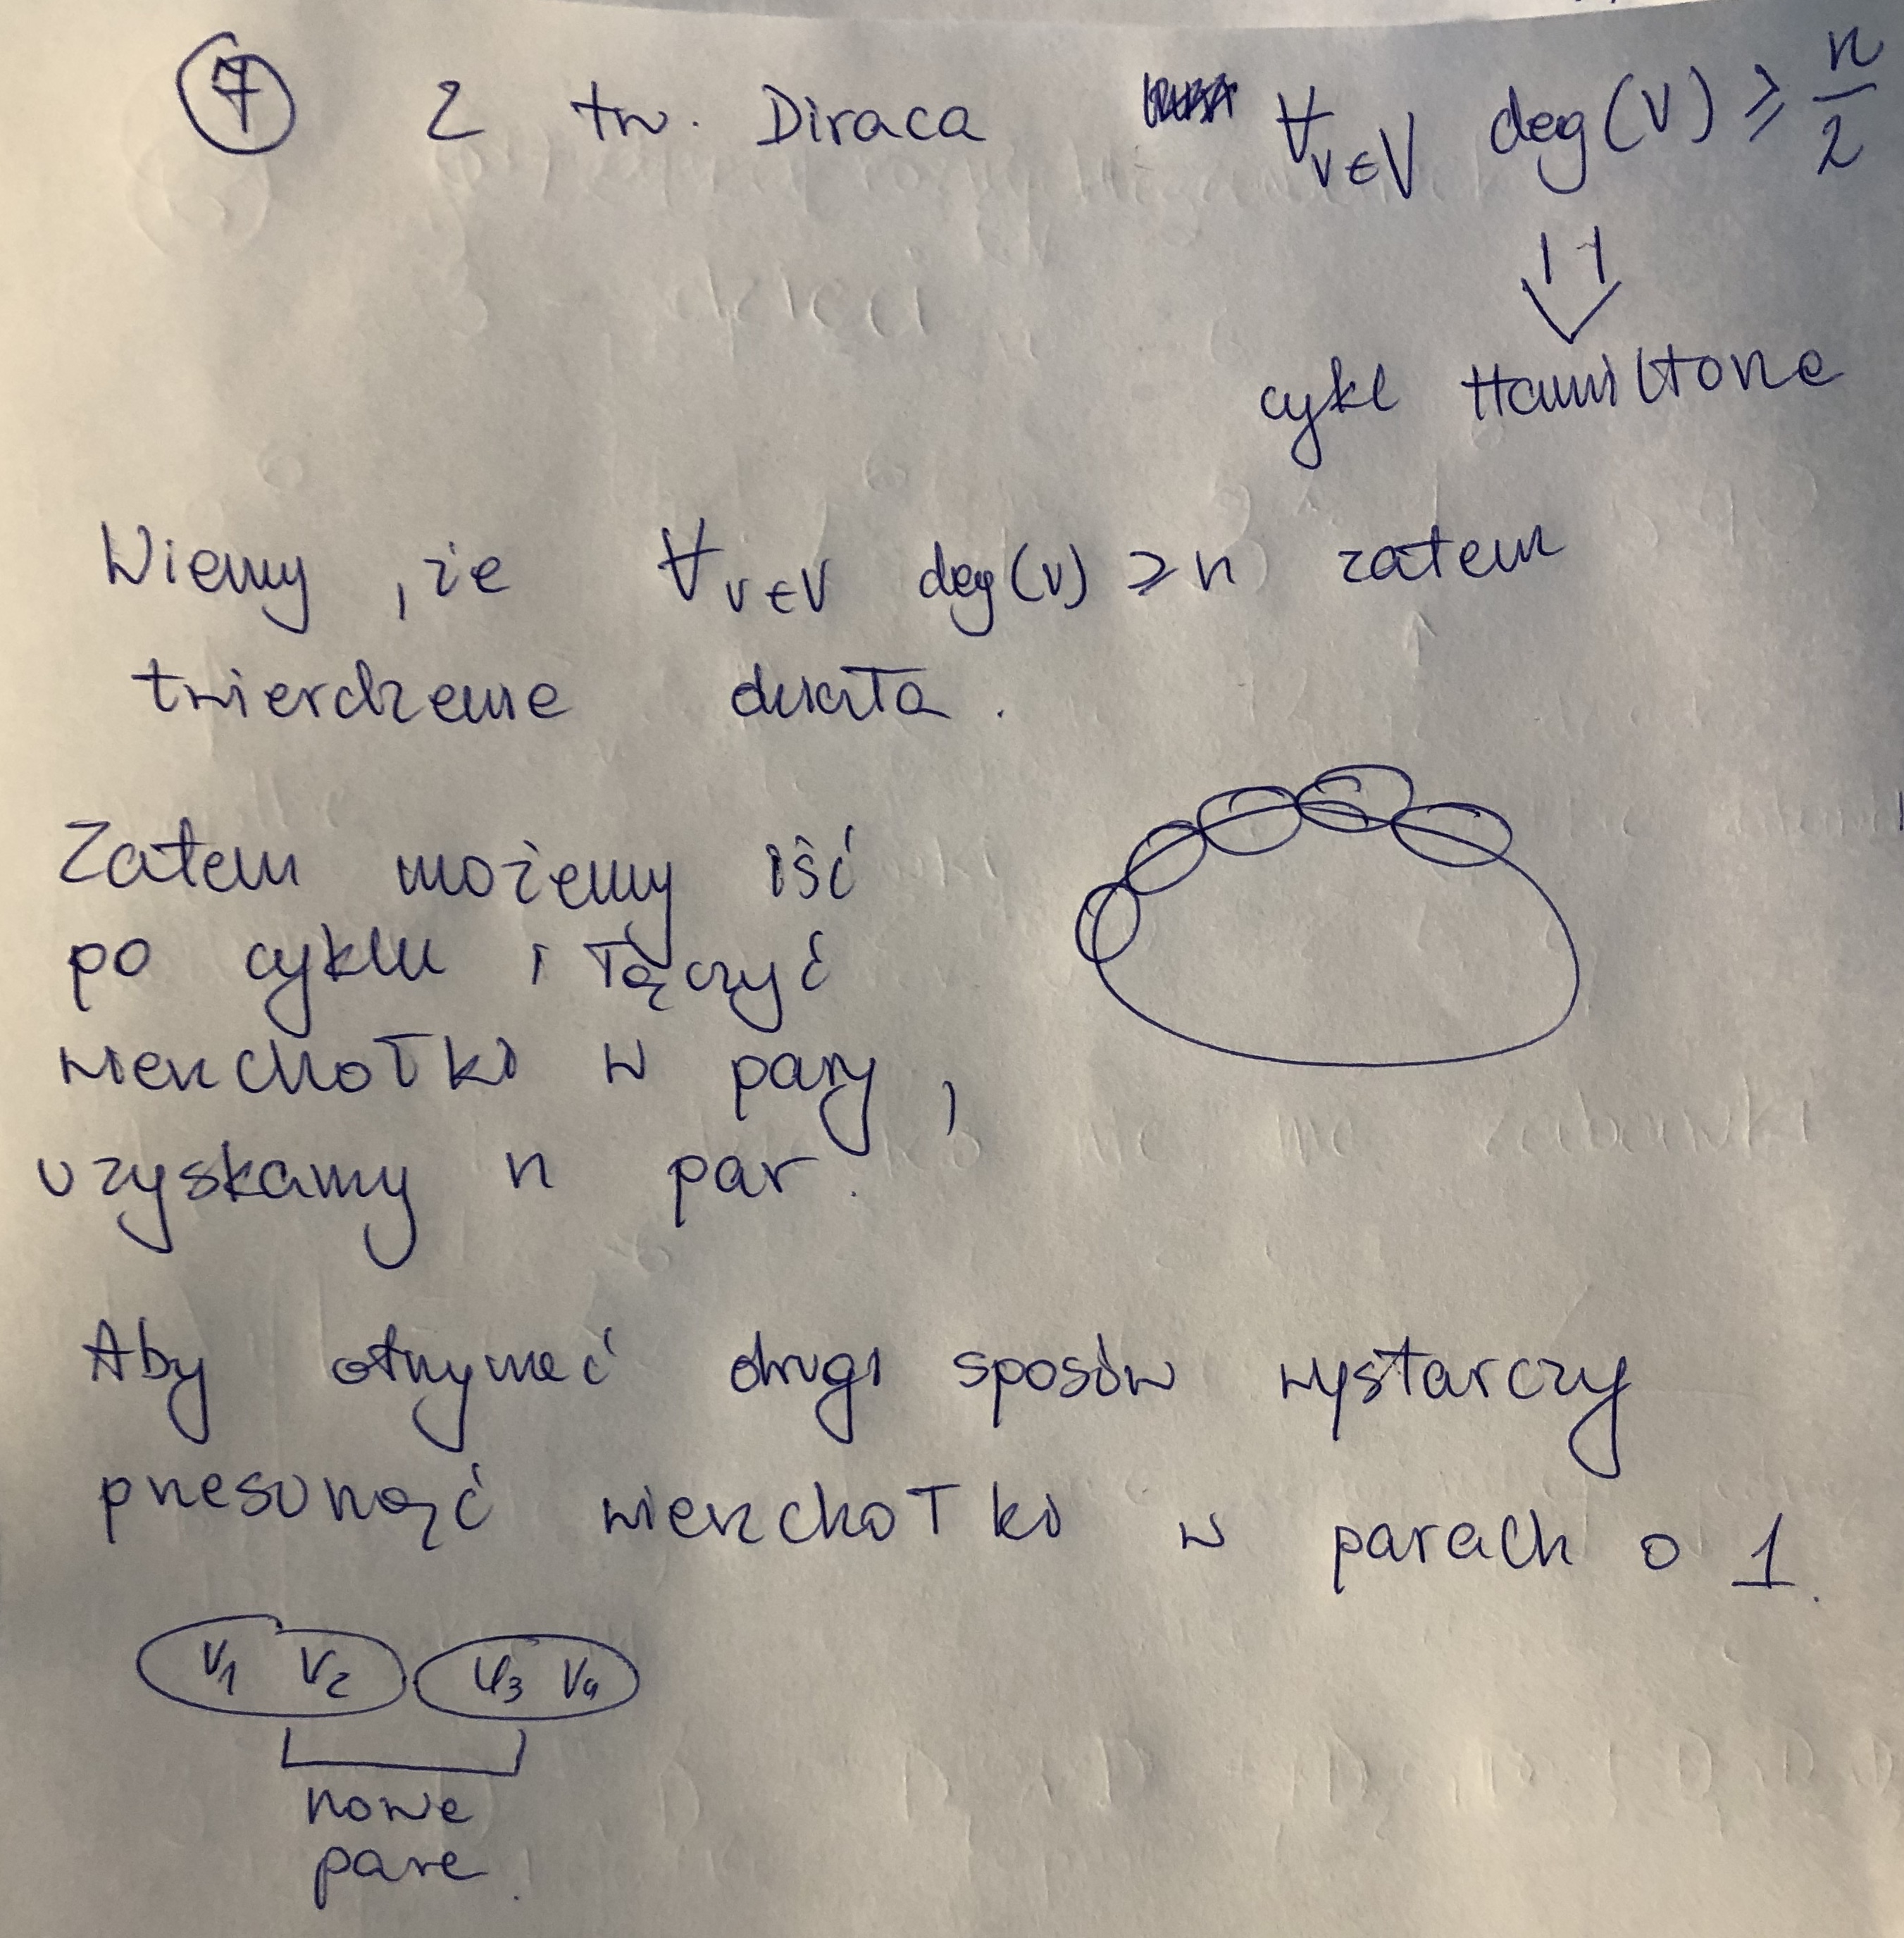 7 Z tw. Diraca ∀v∈V deg(v) ≥ n/2
⇓
cykl Hamiltona
Wiemy, że ∀v∈V deg(v) ≥ n zatem
twierdzenie działa.
Zatem możemy iść
po cyklu i łączyć
wierzchołki w pary,
uzyskamy n par.
Aby otrzymać drugi sposów wystarczy
przesunąć wierzchołki w parach o 1.
v1 v2 v3 v4
nowe
pare.